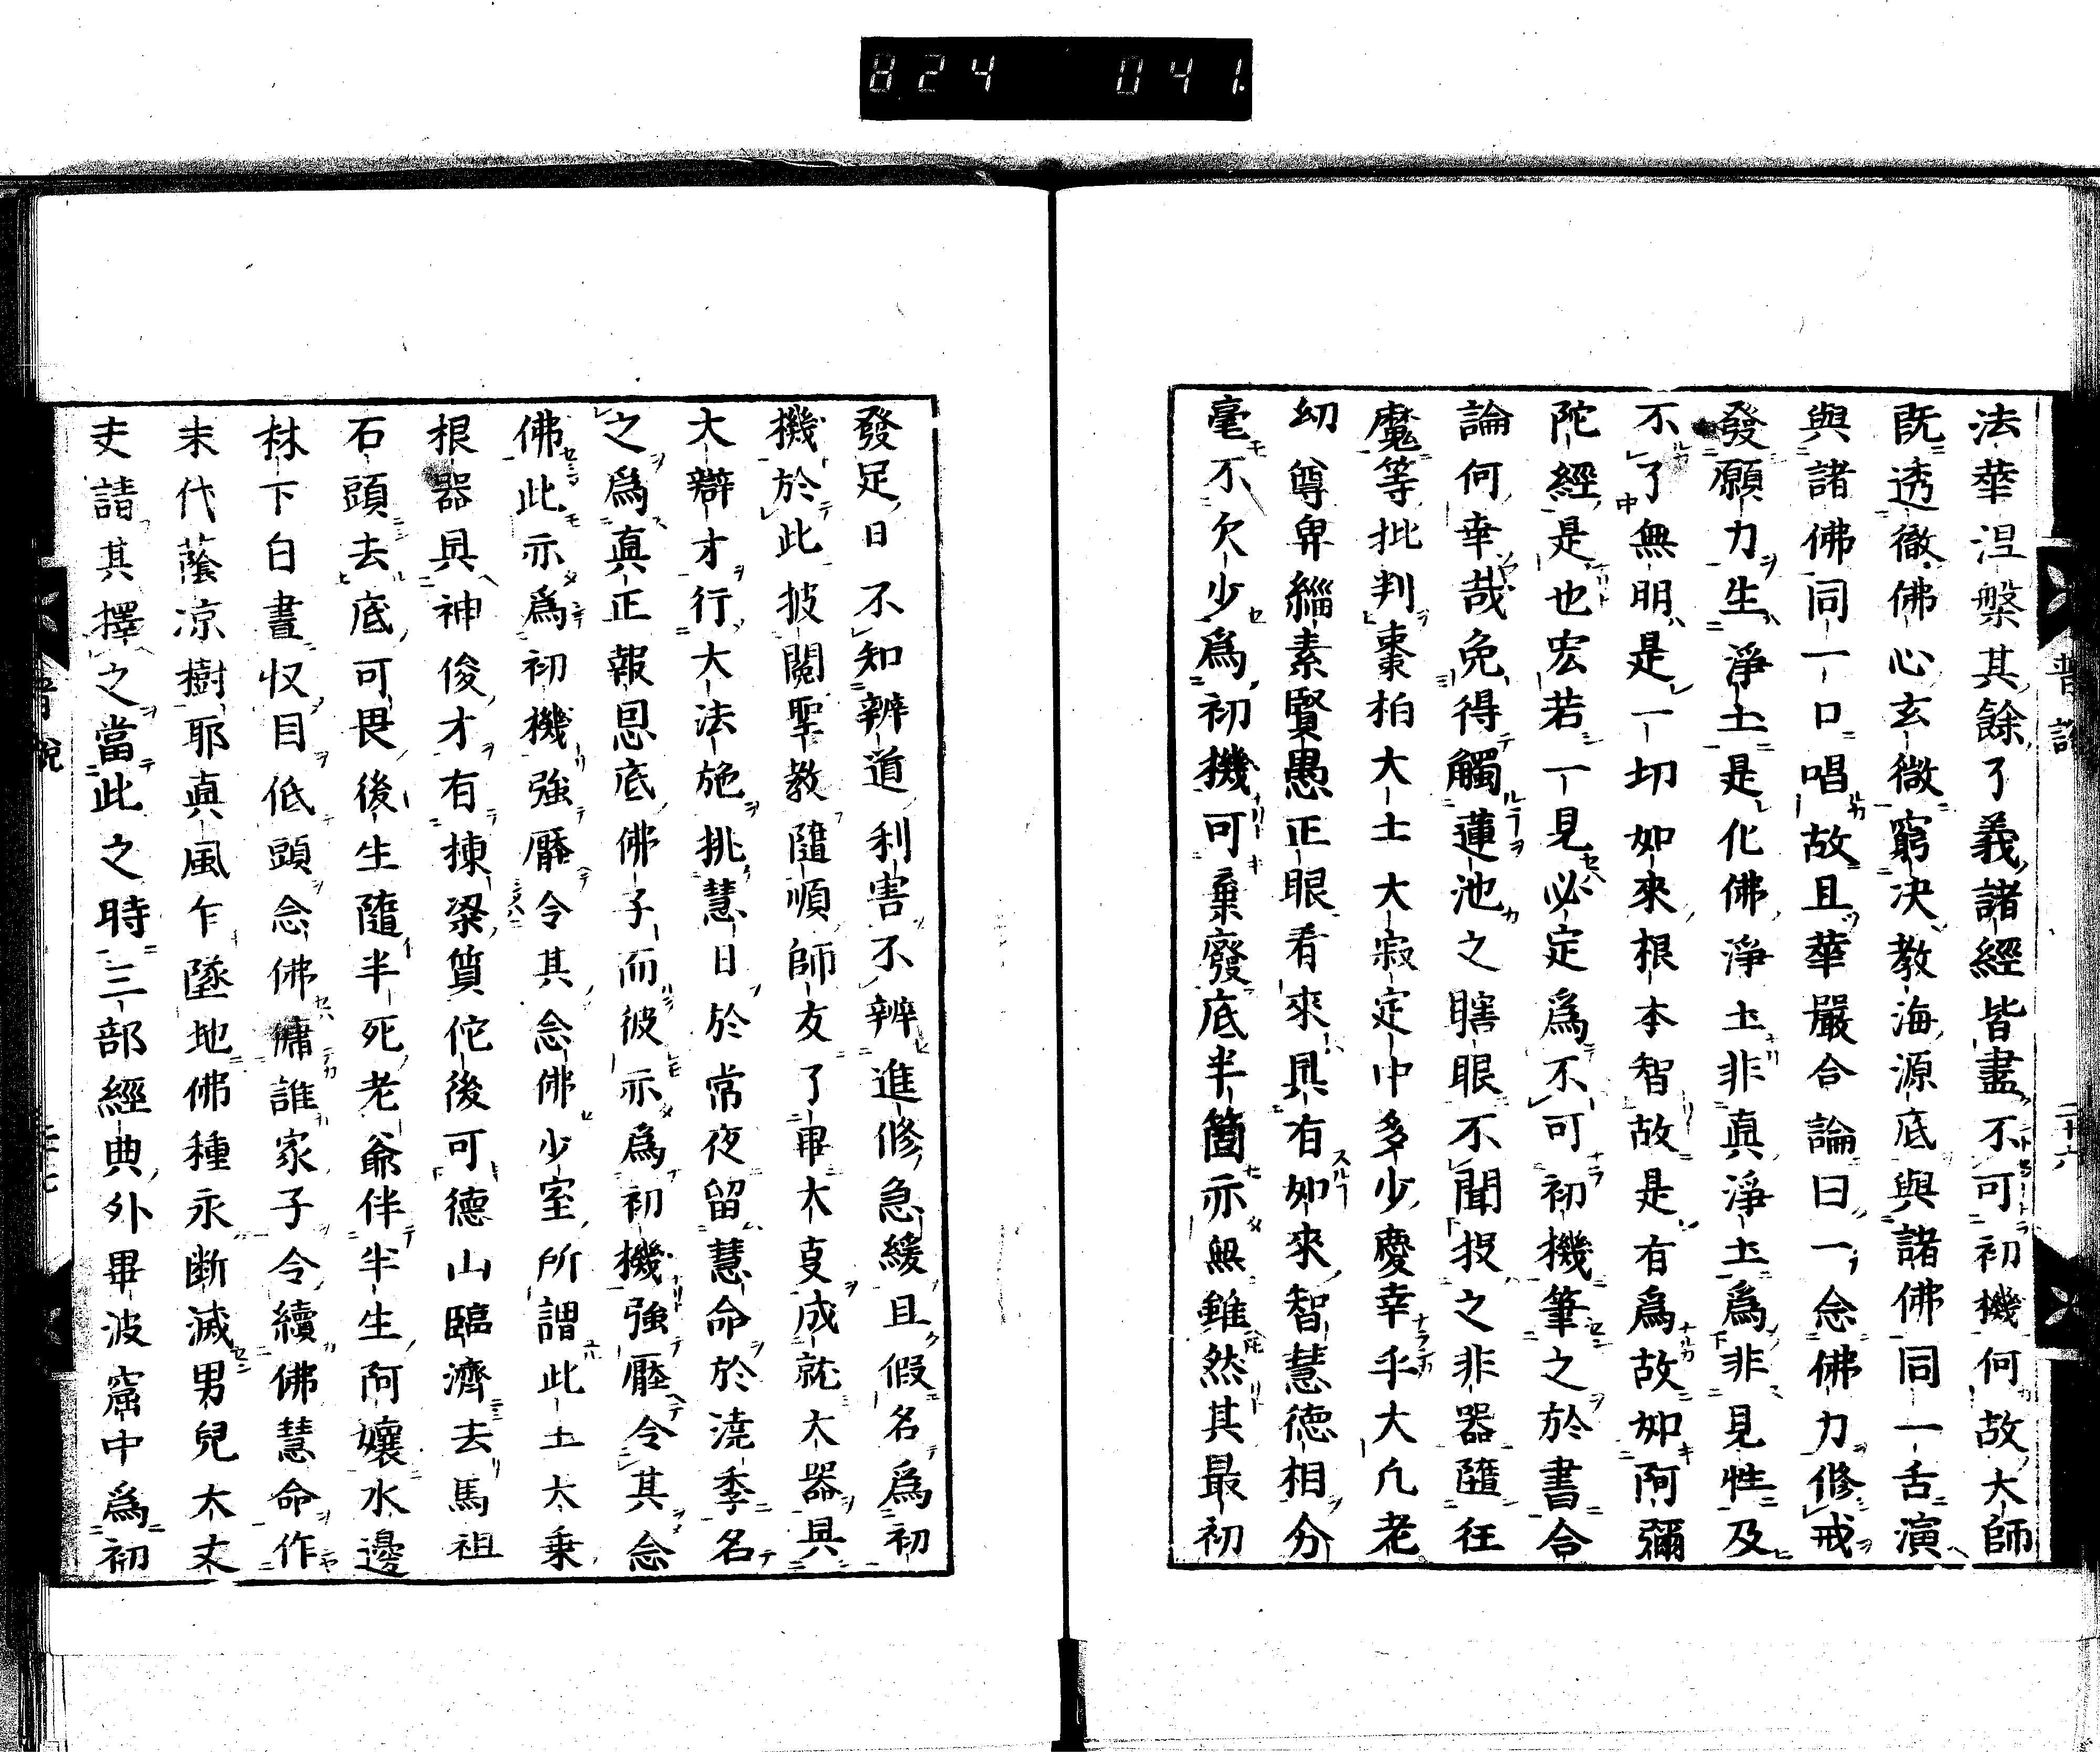 824 041
法華涅槃其餘了義諸經皆盡不可初機何故大師
既透徹佛心玄微窮決教海源底與諸佛同一舌演
與諸佛同一口唱故且華嚴合論曰一念佛力修戒
發願力生淨土是化佛淨土非真淨土為非見性及
不了無明是一切如來根本智故是有為故如阿彌
陀經是也宏若一見必定為不可初機筆之於書合
論何幸哉免得觸蓮池之瞎眼不聞投之非器隨在
魔等批判棗柏大士大寂定中多少慶幸乎大凡老
幼尊卑緇素賢愚正眼看來具有如來智慧德相分
毫不欠少為初機可棄廢底半箇亦無雖然其最初
發足日不知辨道利害不辨進修急緩且假名為初
機於此披閱聖教隨順師友了畢大叓成就大器具
大辯才行大法施挑慧日於常夜留慧命於澆季名
之為真正報恩底佛子而彼亦為初機強壓令其念
佛此亦為初機強壓令其念佛少室所謂此土大乘
根器具神俊才有棟梁質佗後可德山臨濟去馬祖
石頭去底可畏後生隨半死老爺伴半生阿孃水邊
林下白晝収目低頭念佛慵誰家子令續佛慧命作
末代蔭凉樹耶真風乍墜地佛種永断滅男兒大丈
夫請其擇之當此之時三部經典外畢波窟中為初
普說
二十六